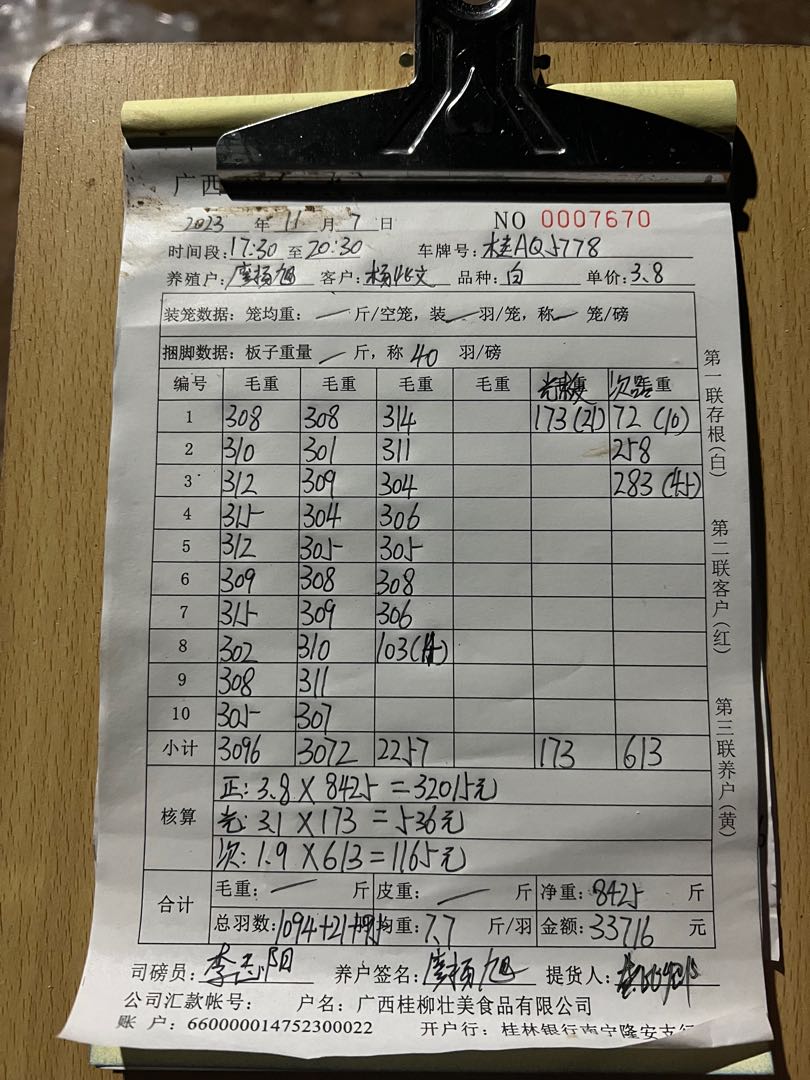 广西
2023 年 11 月 7 日 NO 0007670
时间段:17:30 至 20:30 车牌号:桂AQ5778
养殖户:廖扬旭 客户:杨 文 品种:白 单价:3.8
装笼数据: 笼均重: — 斤/空笼, 装 — 羽/笼, 称 — 笼/磅
捆脚数据: 板子重量 — 斤, 称 40 羽/磅
编号 毛重 毛重 毛重 毛重 次 重
1 308 308 314 173(21) 72(10)
2 310 301 311 258
3 312 309 304 283(45)
4 315 304 306
5 312 305 305
6 309 308 308
7 315 309 306
8 302 310 103
9 308 311
10 305 307
小计 3096 3072 2257 173 613
核算
正:3.8×8425=32015元
光:3.1×173=536元
次:1.9×613=1165元
合计
毛重: — 斤 皮重: — 斤 净重:8425 斤
总羽数:1094+21+ 均重:7.7 斤/羽 金额:33716 元
司磅员:李志阳 养户签名:廖扬旭 提货人:
公司汇款帐号: 户名:广西桂柳壮美食品有限公司
账 户:660000014752300022 开户行:桂林银行南宁隆安支行
第一联存根(白)
第二联客户(红)
第三联养户(黄)